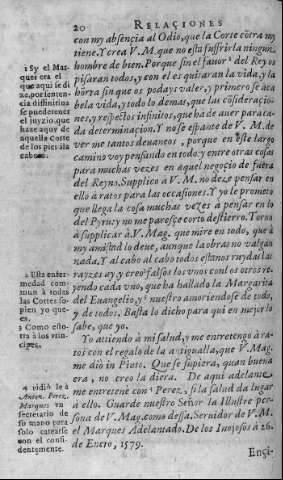 20 RELACIONES
con my absençia al Odio, que la Corte côtra mi
tiene. Y crea V.M. que no esta suffrir la ningun
hombre de bien. Porque sin el fauor¹ del Rey os
pisaran todos, y con el es quitaran la vida, y la
horra sin que os podays valer, y primero se aca
be la vida, y todo lo demas, que las cõsideracio-
nes, y respectos infinitos, que ha de auer para ca-
da determinacion. Y no se espante de V. M. de
ver me tantos deuaneos, porque en este largo
camino voy pensando en todo y entre otras cosas
para muchas vezes en aquel negocio de fuera
del Reyno. Supplico à V. M. no dexe pensar en
ello à ratos para las occasiones. Y yo le prometo
que llega la cosa muchas vezes à pensar en lo
del Pyru y no me paresçe corto destierro. Torno
à supplicar à V. Mag. que mire en todo, que à
my amistad lo deue, aunque la obras no valgan
nada. Y al cabo al cabo todos estamos ruydas las
rayzes ay y creo² falsos los vnos con los otros vi-
uiendo cada vno, que ha hallado la Margarita
del Euangelio, y³ nuestro amoriendose de todo,
y de todos. Basta lo dicho para qui en mejor lo
sabe, que yo.
Yo attiendo à mi salud, y me entretengo à ra-
tos con el regalo de la antigualla, que V. Mag.
me dió in Pinto. Que se supiera, quan buena
era, no creo la diera. De aqui adelante
me entretendre con⁴ Perez, si la salud da lugar
à ello. Guarde nuestro Señor la Illustre per-
sona de V. Mag. como dessa. Seruidor de V. M.
el Marques Adelantado. De los Inojosos à 26.
de Enero, 1579.
Engi-
1 Sy el Mar-
ques era el
que aqui se di
ze, por senten-
cia diffinitiua
se puede tener
el juyzio que
haze aquy de
aquella Corte
de los pies à la
cabeça.
2 Esta enfer-
medad com-
mun à todas
las Cortes so-
pien yo que
es.
3 Como esto-
tra à los prin-
cipes.
4 vidiò le à
Anton. Perez.
Marques va
secretario de
su mano para
solo cartearse
con el confi-
dentemente.